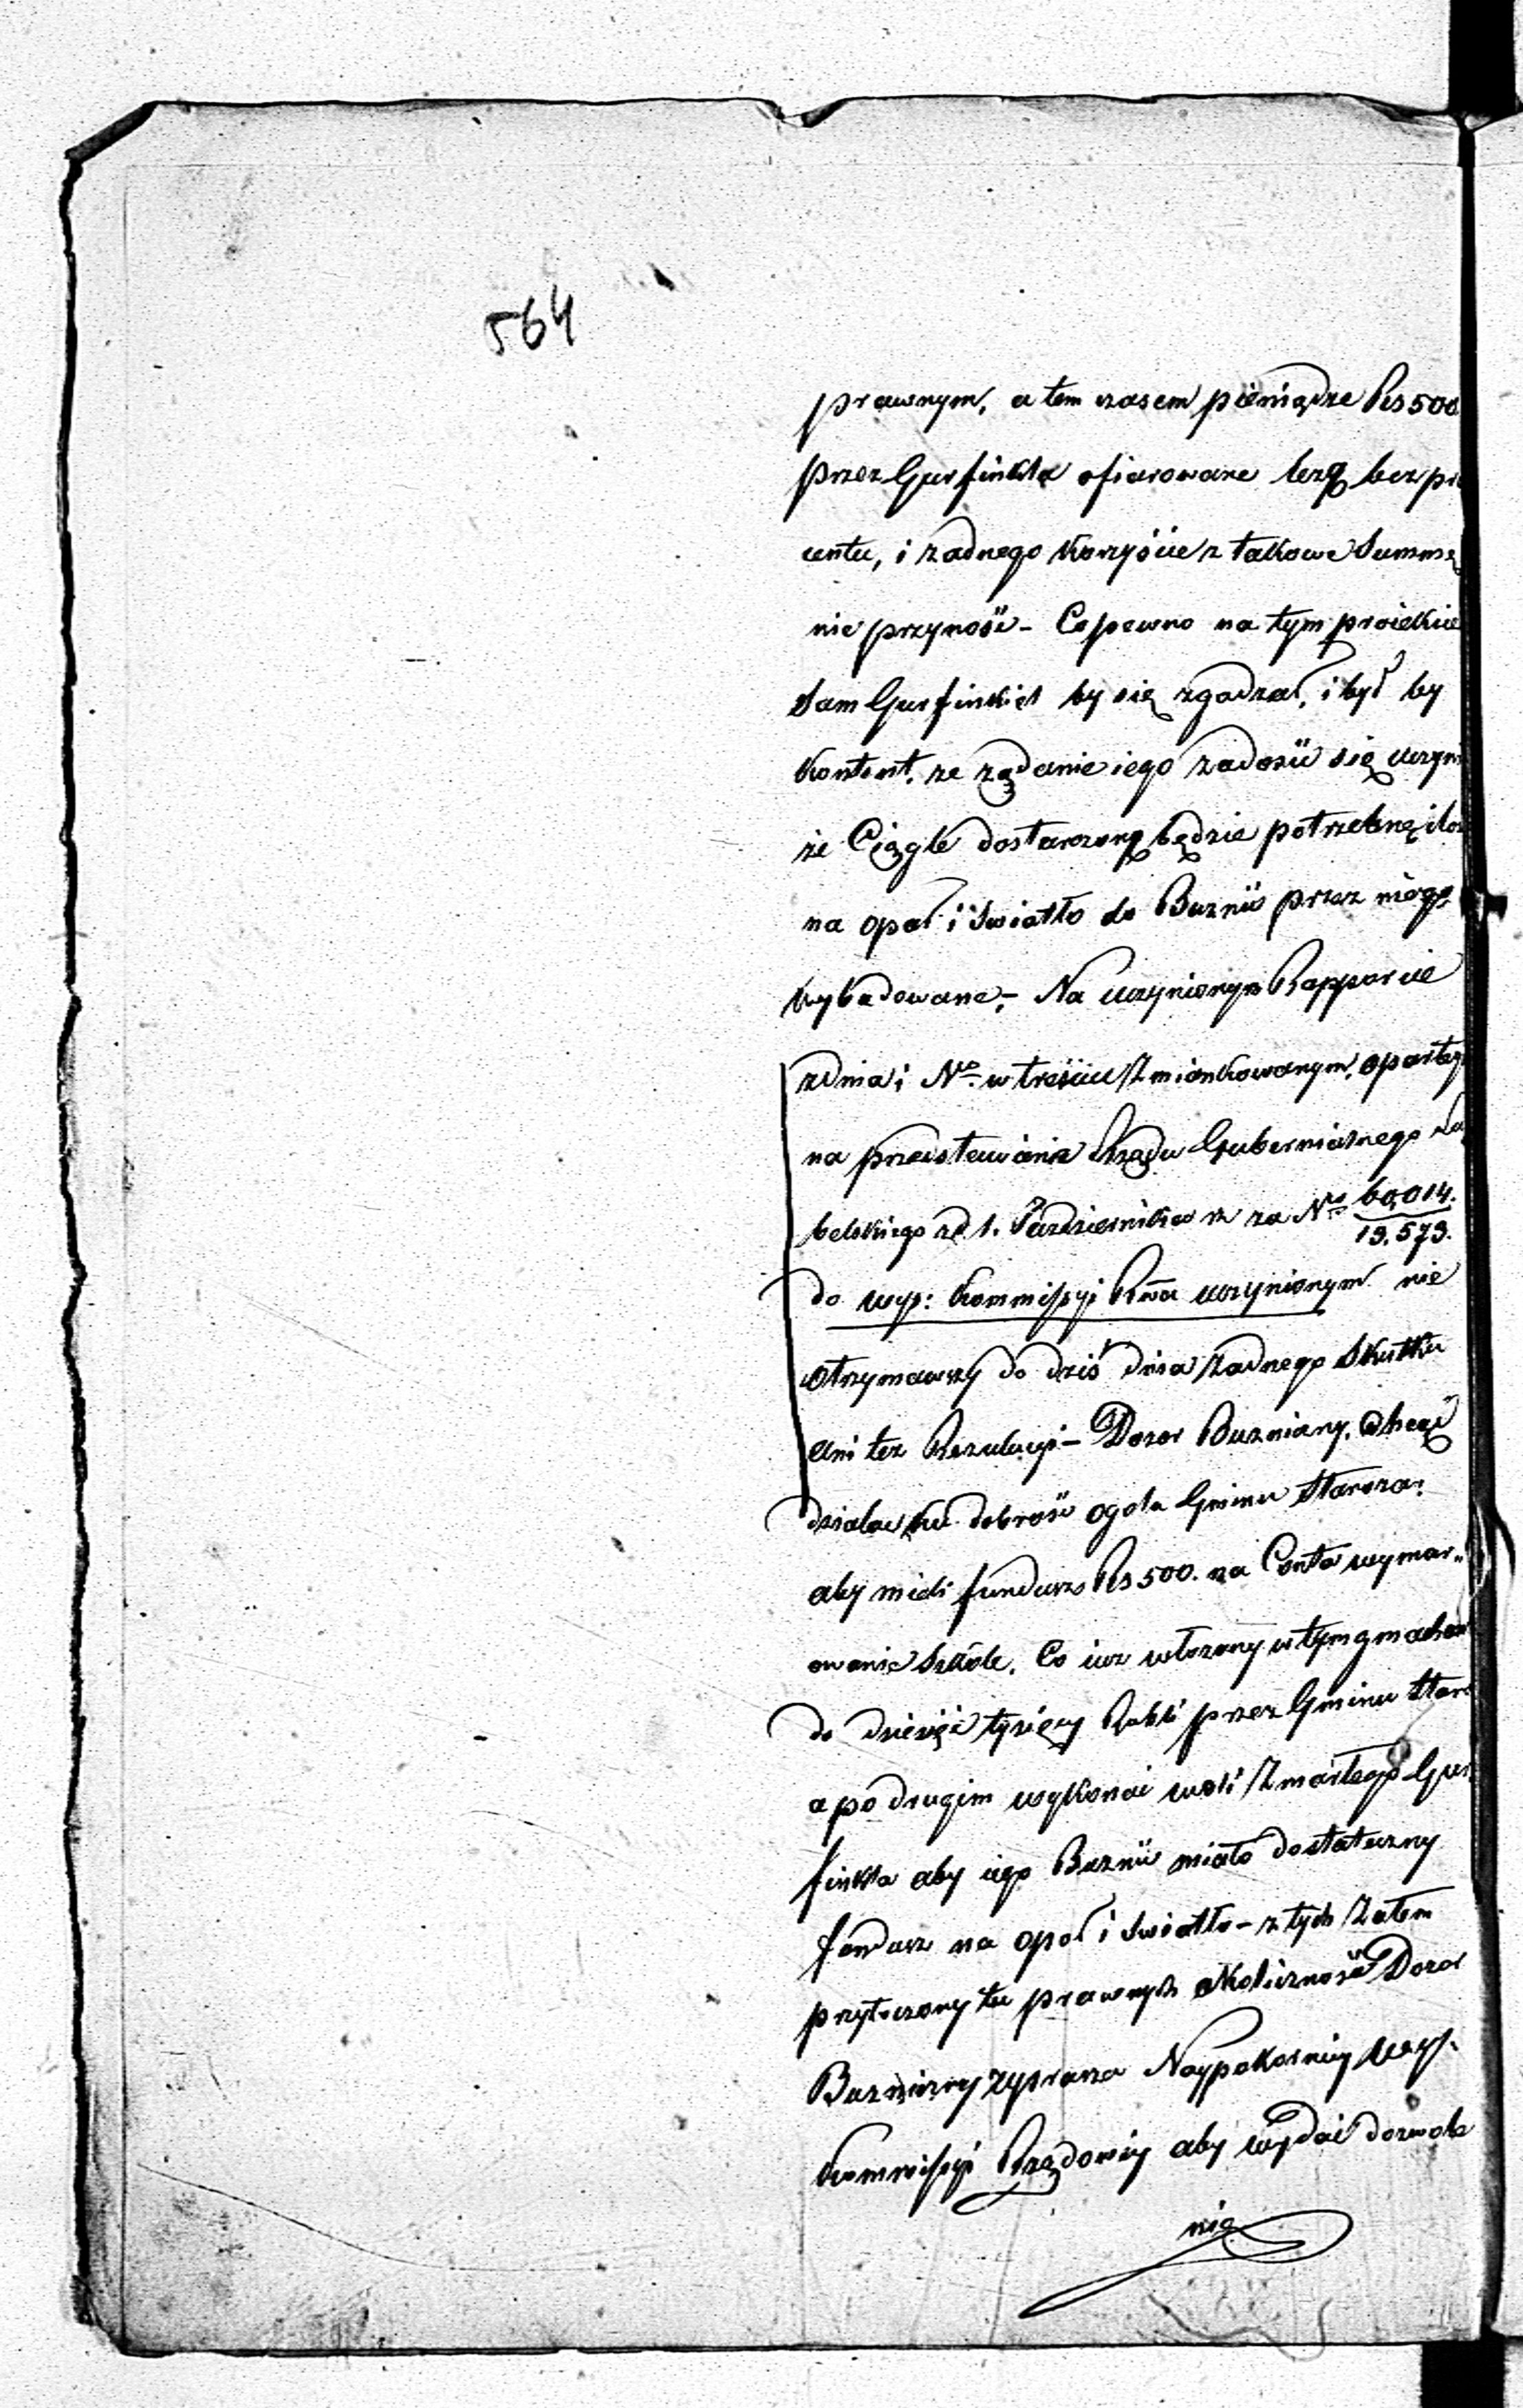 564
prawnym, a tem czasem pieniądze Rs 500
przez Gurfinkla ofiarowane lezą bez pro
centu, i zadnego korzyście z takowe Summę
nie przynosić - Co pewno na tym proiekcie
Sam Gurfinkiel by się zgadzał, i był by
kontent, ze ządanie iego zadosić się uczyni
ze Ciągle dostarczoną będzie potrzebnę ilos
na opał i Swiatło do Buznic przez niego
wybudowane, - Na uczynionym Rapporcie
z dnia i No. w treście Zmiankowanym, opartej
na przedstawienie Rządu Gubernialnego Lu
belskiego z d 1. Pazdziernika za No 60,014.
19,579.
do wys: Kommissyi Rwa uczynionym nie
otrzymawszy do dziś dnia zadnego Skutku
ani tez Rezulucyi - Dozor Buzniczny, Chcąc
działac ku dobrość ogołu Gminu Staroza:
aby mieli fundusz Rs 500. na Conta wymor„
owanie Szkole, Co iuz włozony w tym gmachem
do dziesięć tysięcy Rubli przez Gminu Staro
a po drugim wykonać woli Zmarłego Gur
finkla aby iego Buznic miało dostateczny
fundusz na opał i Swiatło - z tych Zatem
przytoczony tu prawnych okoliczność Dozor
Buzniczny uprasza Naypokorniey wys.
Kommissyi Rządowiy aby wydać dozwole
nie